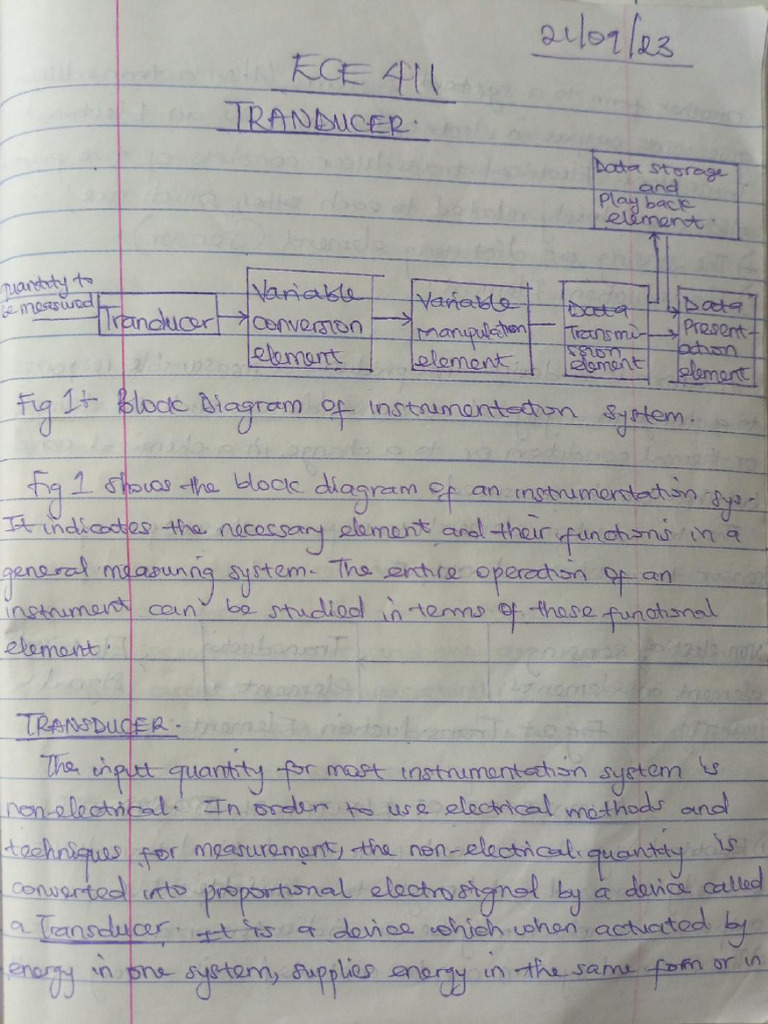 21/09/23
ECE 411
TRANDUCER.
Data storage
and
Play back
element.
quantity to
be measured
Tranducer
Variable
conversion
element
Variable
manipulation
element.
Data
Transmi-
ssion
element
Data
Present-
ation
element
Fig 1:- Block Diagram of instrumentation system.
Fig 1 shows the block diagram of an instrumentation sys-
It indicates the necessary element and their functions in a
general measuring system. The entire operation of an
instrument can be studied in terms of these functional
element.
TRANSDUCER.
The input quantity for most instrumentation system is
non-electrical. In order to use electrical methods and
techniques for measurement, the non-electrical quantity is
converted into proportional electrosignal by a device called
a Transducer. It is a device which when actuated by
energy in one system, supplies energy in the same form or in